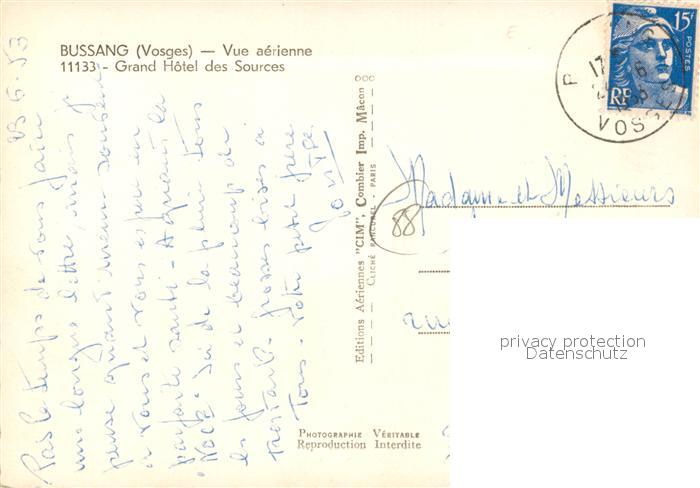 BUSSANG (Vosges) — Vue aérienne
11133 - Grand Hôtel des Sources
23.6.53
Pas le temps de vous faire
une longue lettre, mais je
pense quand même souvent
à vous et vous espère en
parfaite santé - Quant à la
"Noce"
les jours et beaucoup de
travail - Grosses bises à
tous - Votre petit frère
Editions Aériennes "CIM", Combier Imp. Mâcon
CLICHÉ RANCUREL - PARIS
PHOTOGRAPHIE VÉRITABLE
Reproduction Interdite
15F
POSTES
RF
VOSGES
88
Madame et Messieurs
rue
privacy protection
Datenschutz